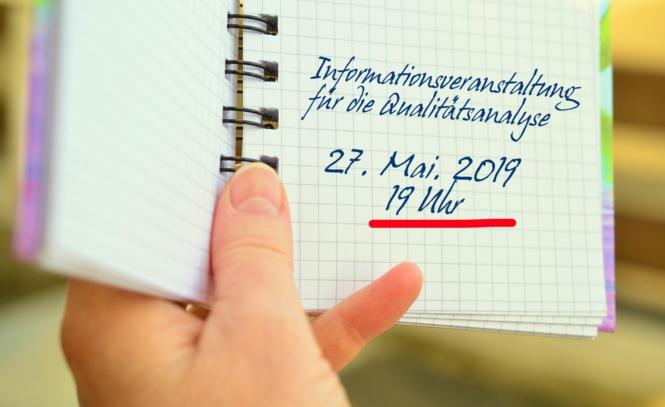 Informationsveranstaltung
für die Qualitätsanalyse
27. Mai. 2019
19 Uhr